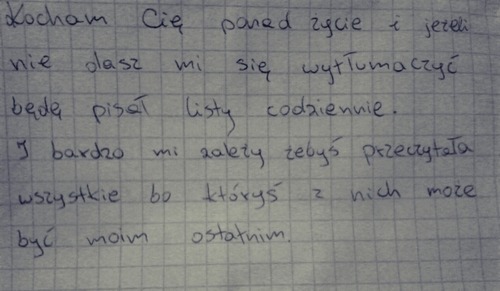 Kocham Cię ponad życie i jeżeli
nie dasz mi się wytłumaczyć
będę pisał listy codziennie.
I bardzo mi zależy żebyś przeczytała
wszystkie bo któryś z nich może
być moim ostatnim.